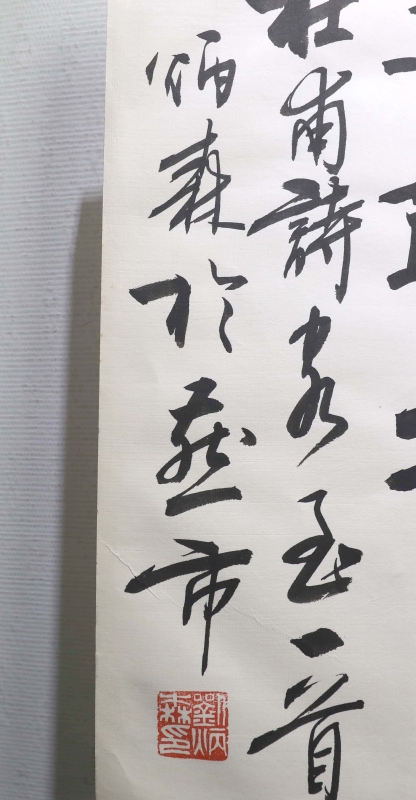 杜甫詩客至一首
炳森於燕市
劉炳森印